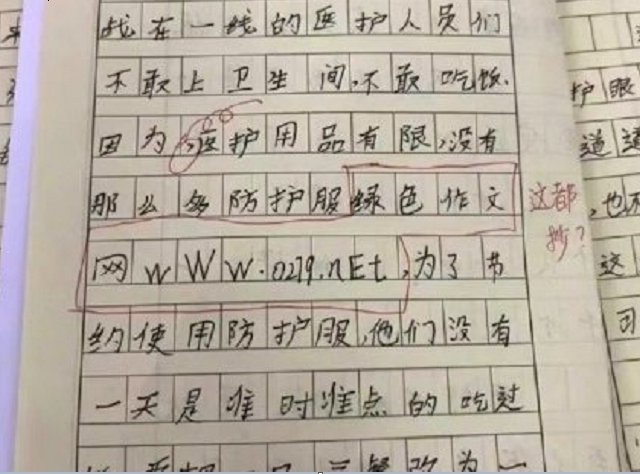 战在一线的医护人员们
不敢上卫生间,不敢吃饭.
因为,医护用品有限,没有
那么多防护服绿色作文
网wWW.0279.nEt,为了节
约使用防护服,他们没有
一天是准时准点的吃过
这都
抄?
护眼
道道
,也不
这
司